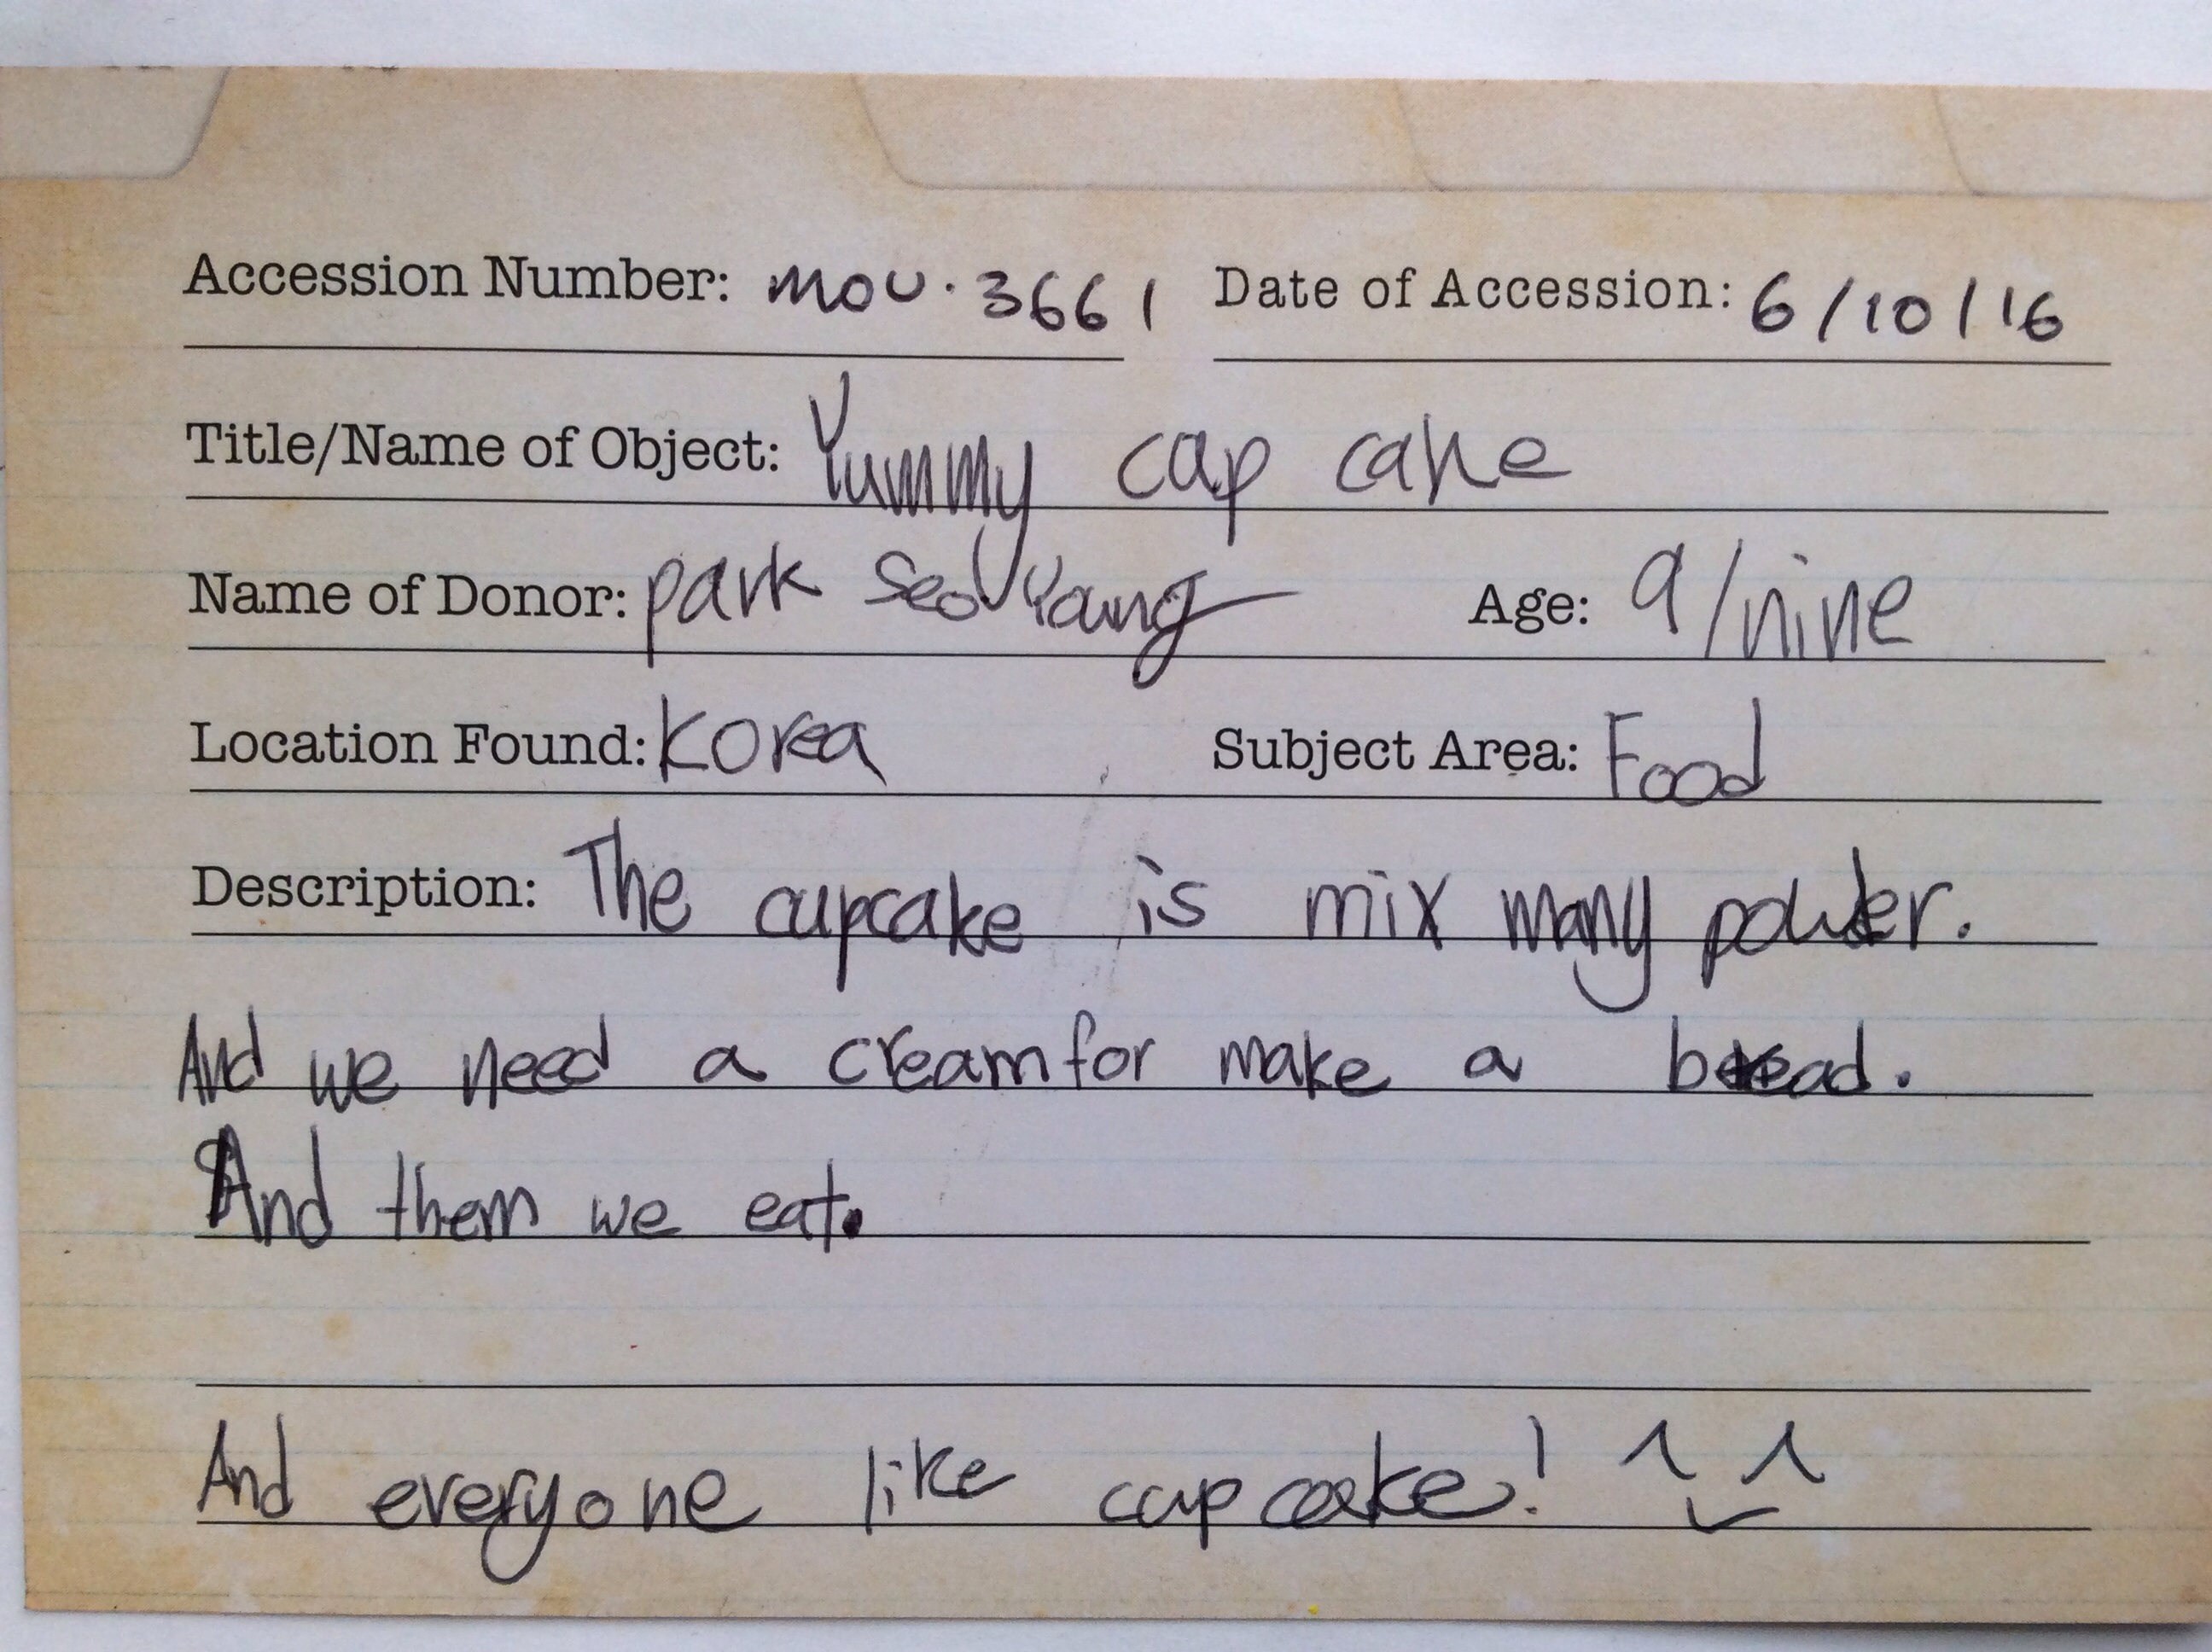 Accession Number: MOU.3661 Date of Accession: 6/10/16
Title/Name of Object: Yummy cap cake
Name of Donor: park Seo Young Age: 9/nine
Location Found: Korea Subject Area: Food
Description: The cupcake is mix many powder.
And we need a cream for make a bread.
And them we eat.
And everyone like cupcake!